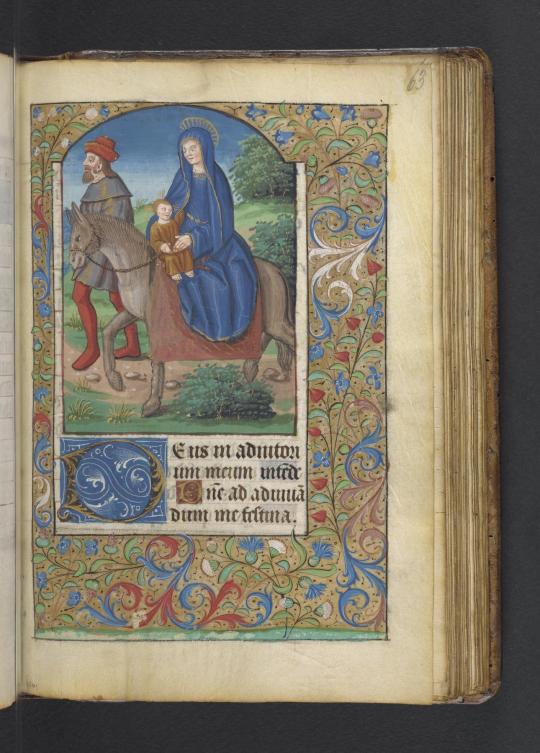 63
Deus in adiutori
um meum intēde
Dñe ad adiuuā
dum me festina.